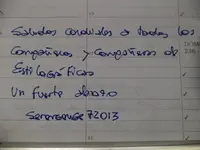 Saludos cordiales a todos los
Compañeros y Compañeras de
Estilográficas
Un fuerte abrazo
72013